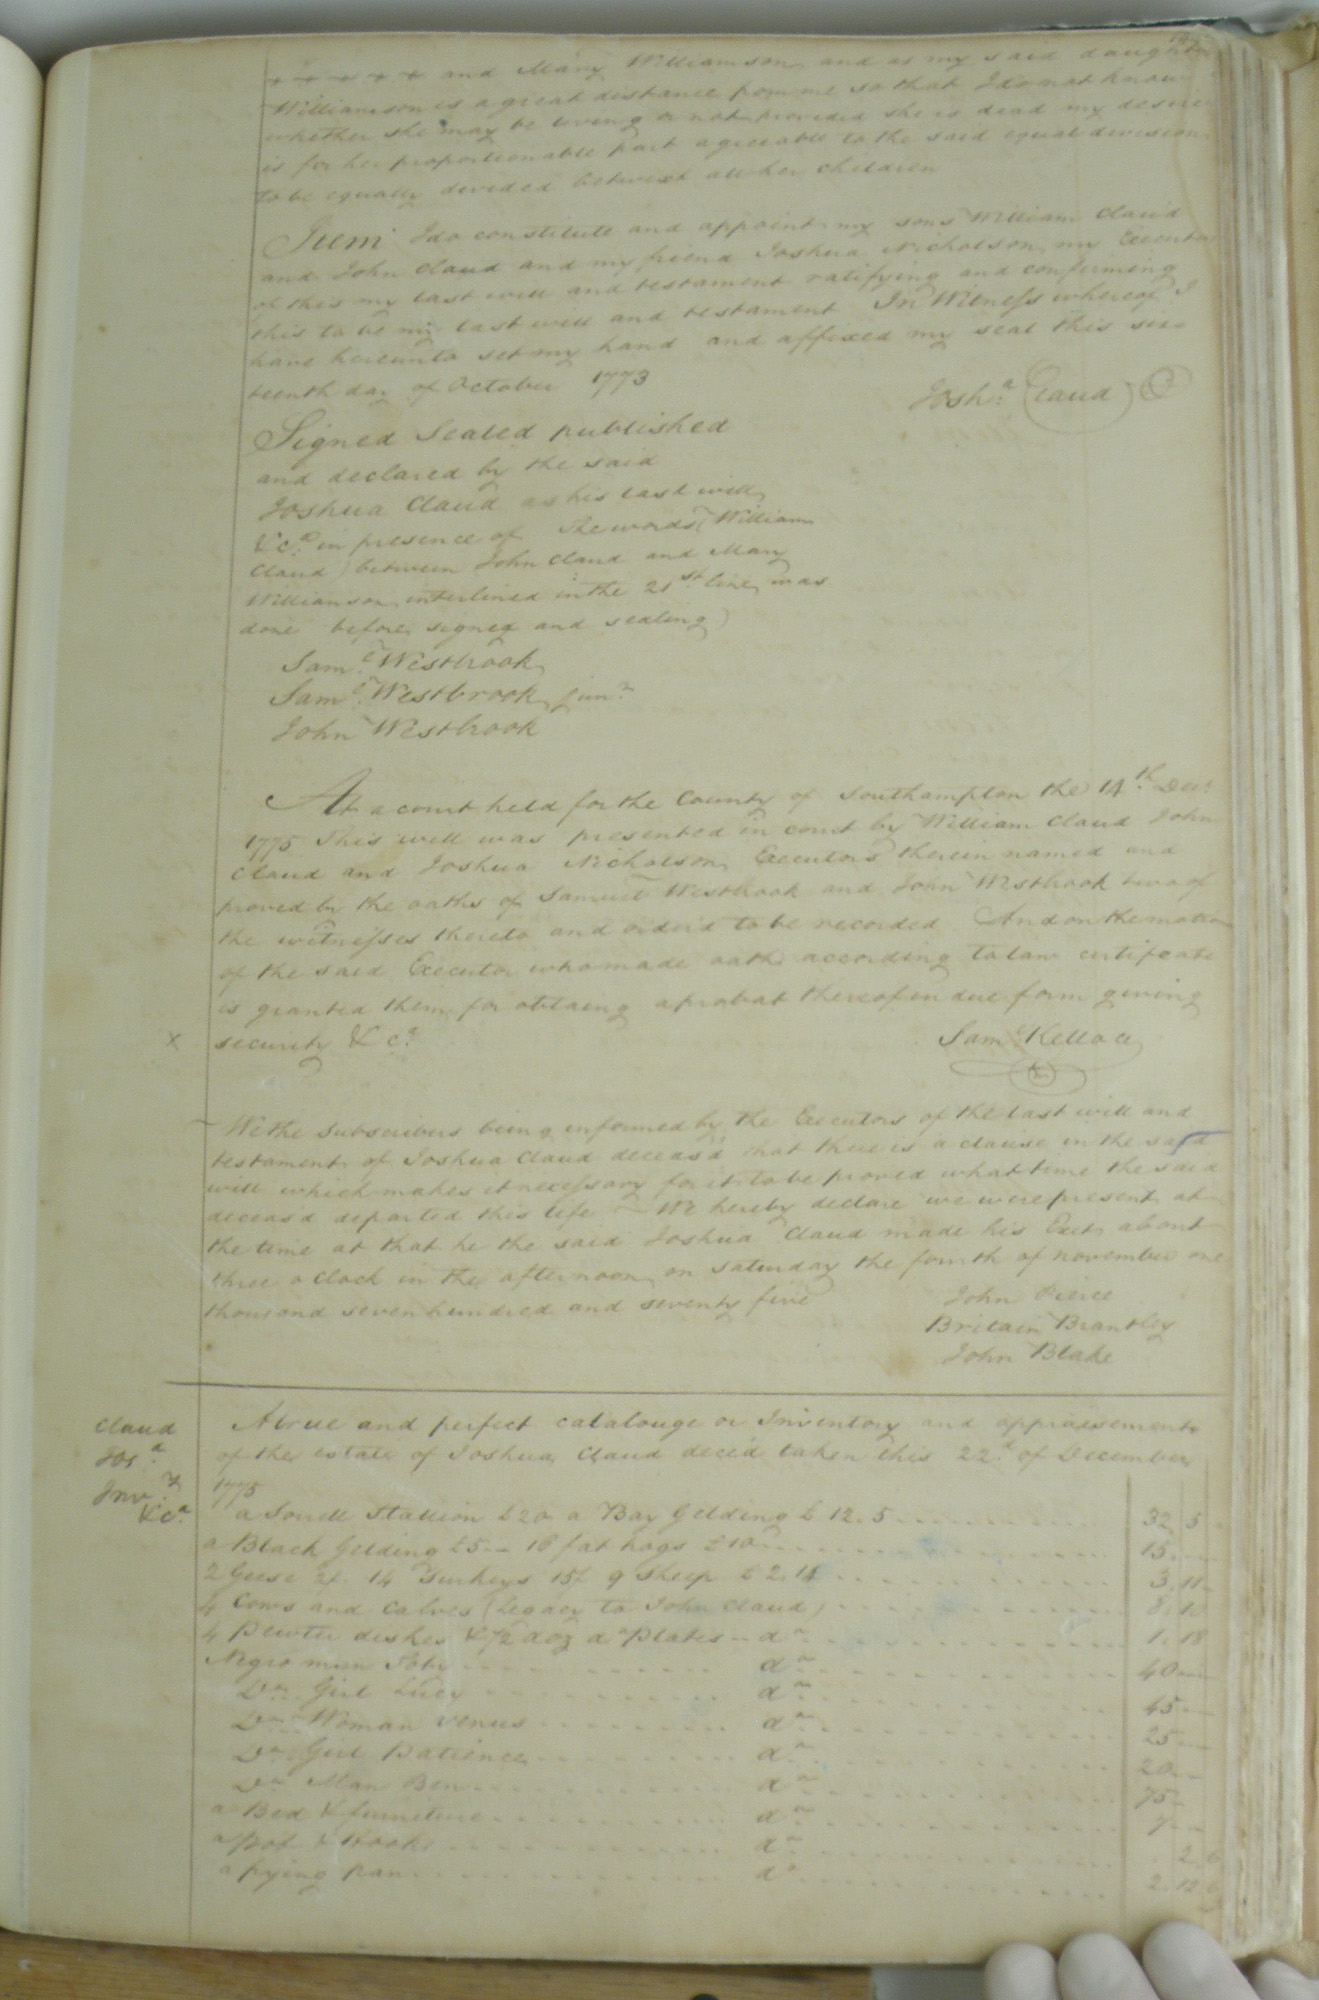 + + + + + and Mary Williamson and as my said daughter
Williamson is a great distance from me so that I do not know
whether she may be living or not provided she is dead my desire
is for her proportionable part agreeable to the said equal division
to be equally devided betwixt all her children
Item I do constitute and appoint my sons William Claud
and John Claud and my friend Joshua Nicholson my Executors
of this my last will and testament ratifying and confirming
this to be my last will and testament In Witness whereof I
have hereunto set my hand and affixed my seal this six
teenth day of October 1773
Josha. Claud
Signed Sealed published
and declared by the said
Joshua Claud as his last will
&ca. in presence of The words (William
Claud) between John Claud and Mary
Williamson interlined in the 21st line was
done before signeg and sealing)
Saml. Westbrook
Saml. Westbrook junr.
John Westbrook
At a court held for the County of Southampton the 14th. Decr
1775 This will was presented in court by William Claud John
Claud and Joshua Nicholson Executors therein named and
proved by the oaths of Samuel Westbrook and John Westbrook two of
the witnesses thereto and orderd to be recorded And on the motion
of the said Executor who made oath according to law certificate
is granted them for obtaing a probat thereof in due form giving
x security &ca.
Saml. Kello
We the Subscribers being informed by the Executors of the last will and
testament of Joshua Claud deceas'd that there is a clause in the said
will which makes it necessary for it to be proved what time the said
deceasd departed this life We hereby declare we were present at
the time at that he the said Joshua Claud made his Exit about
three o Clock in the afternoon on saturday the fourth of november one
thousand seven hundred and seventy five
John Pierce
Britain Brantley
John Blake
Claud
Josa.
Invy.
&ca.
A true and perfect catalouge or Inventory and appraisement
of the estate of Joshua Claud dece'd taken this 22d. of December
1775
a Sorrell Stallion £20 a Bay Gelding £12.5 32 5
a Black Gelding £5 — 18 fat hogs £10 15
2 Geese 2/. 14 Turkeys 15/ 9 Sheep £2.14 3.11
4 Cows and Calves (Legacy to John Claud) 8.10
4 pewter dishes & 1/2 doz do Plates — do. 1.18
Negro man Toby do. 40
Do. Girl Lucy do. 45
Do. Woman Venus do. 25
Do. Girl Patience do. 20
Do. Man Ben do. 75
a Bed & furniture do. 7
a pot & Hooks do. 2.6
a frying pan do. 2.12